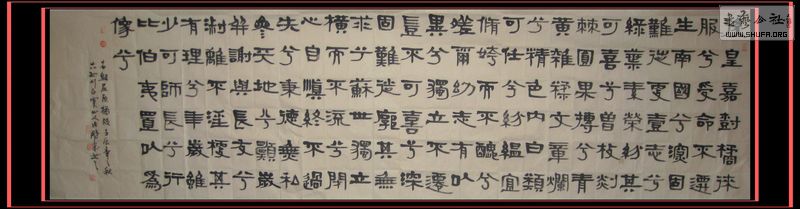 皇嘉樹橘徠
服兮受命不遷
生南國兮深固
難徙更壹志兮
綠葉素榮紛其
可喜兮曾枝剡
棘圓果摶兮青
黃雜糅文章爛
兮精色內白類
可任兮紛緼宜
脩姱而不醜兮
嗟爾幼志有以
異兮獨立不遷
豈不可喜兮深
固難徙廓其無
求兮蘇世獨立
橫而不流兮閉
心自慎終不過
失兮秉德無私
參天地兮願歲
并謝與長友兮
淑離不淫梗其
有理兮年歲雖
少可師長兮行
比伯夷置以為
像兮
屈原橘頌
WWW.SHUFA.ORG